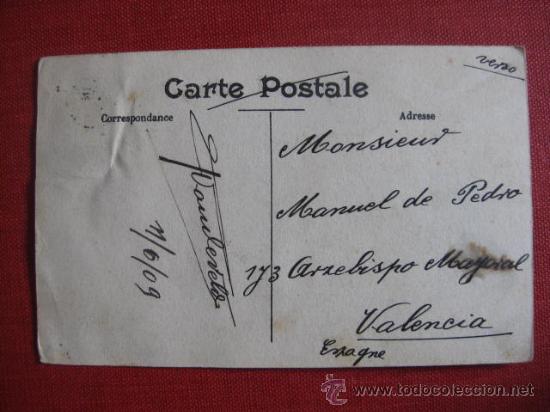 verso
Carte Postale
Correspondance
Adresse
11/6/09
Monsieur
Manuel de Pedro
173 Arzebispo Mayoral
Valencia
Espagne
todocoleccion
www.todocoleccion.net